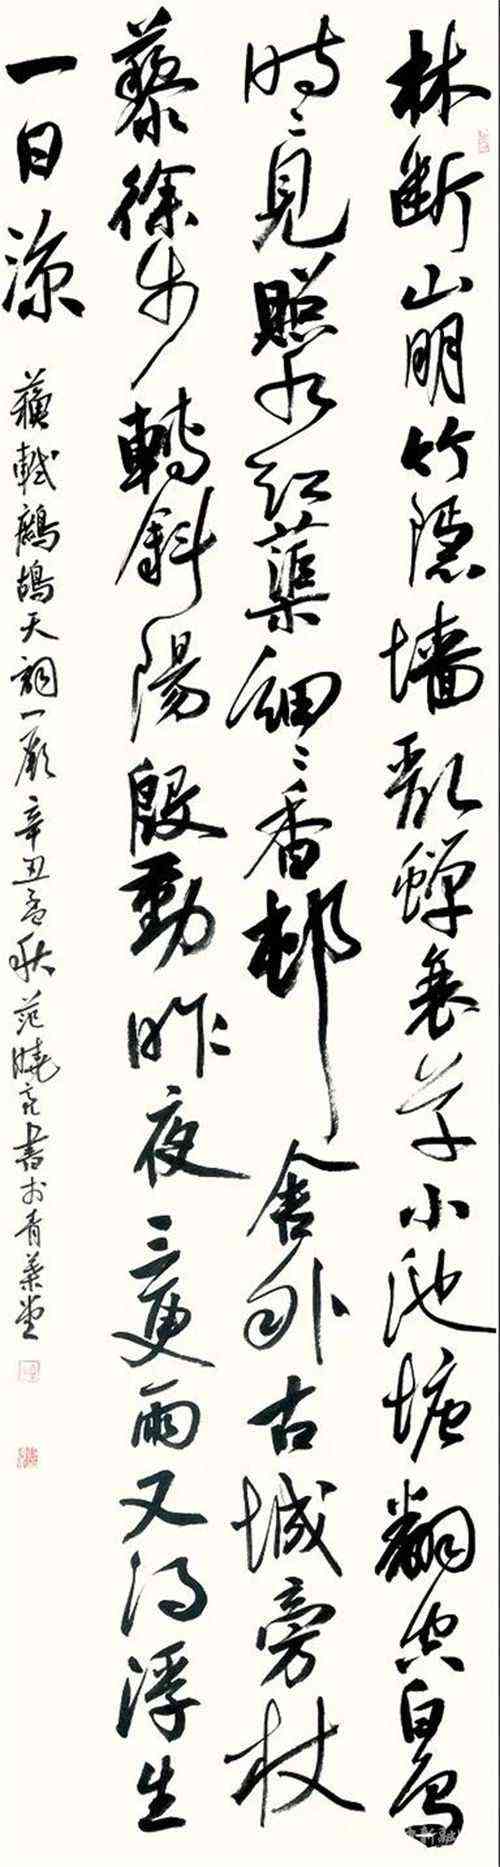 林断山明竹隐墙乱蝉衰草小池塘翻空白鸟
時々見照水红蕖細々香邨舍外古城旁杖
藜徐步轉斜陽殷勤昨夜三更雨又得浮生
一日涼
蘇軾鷓鴣天詞一闋辛丑孟秋范曉亮書於青葉堂